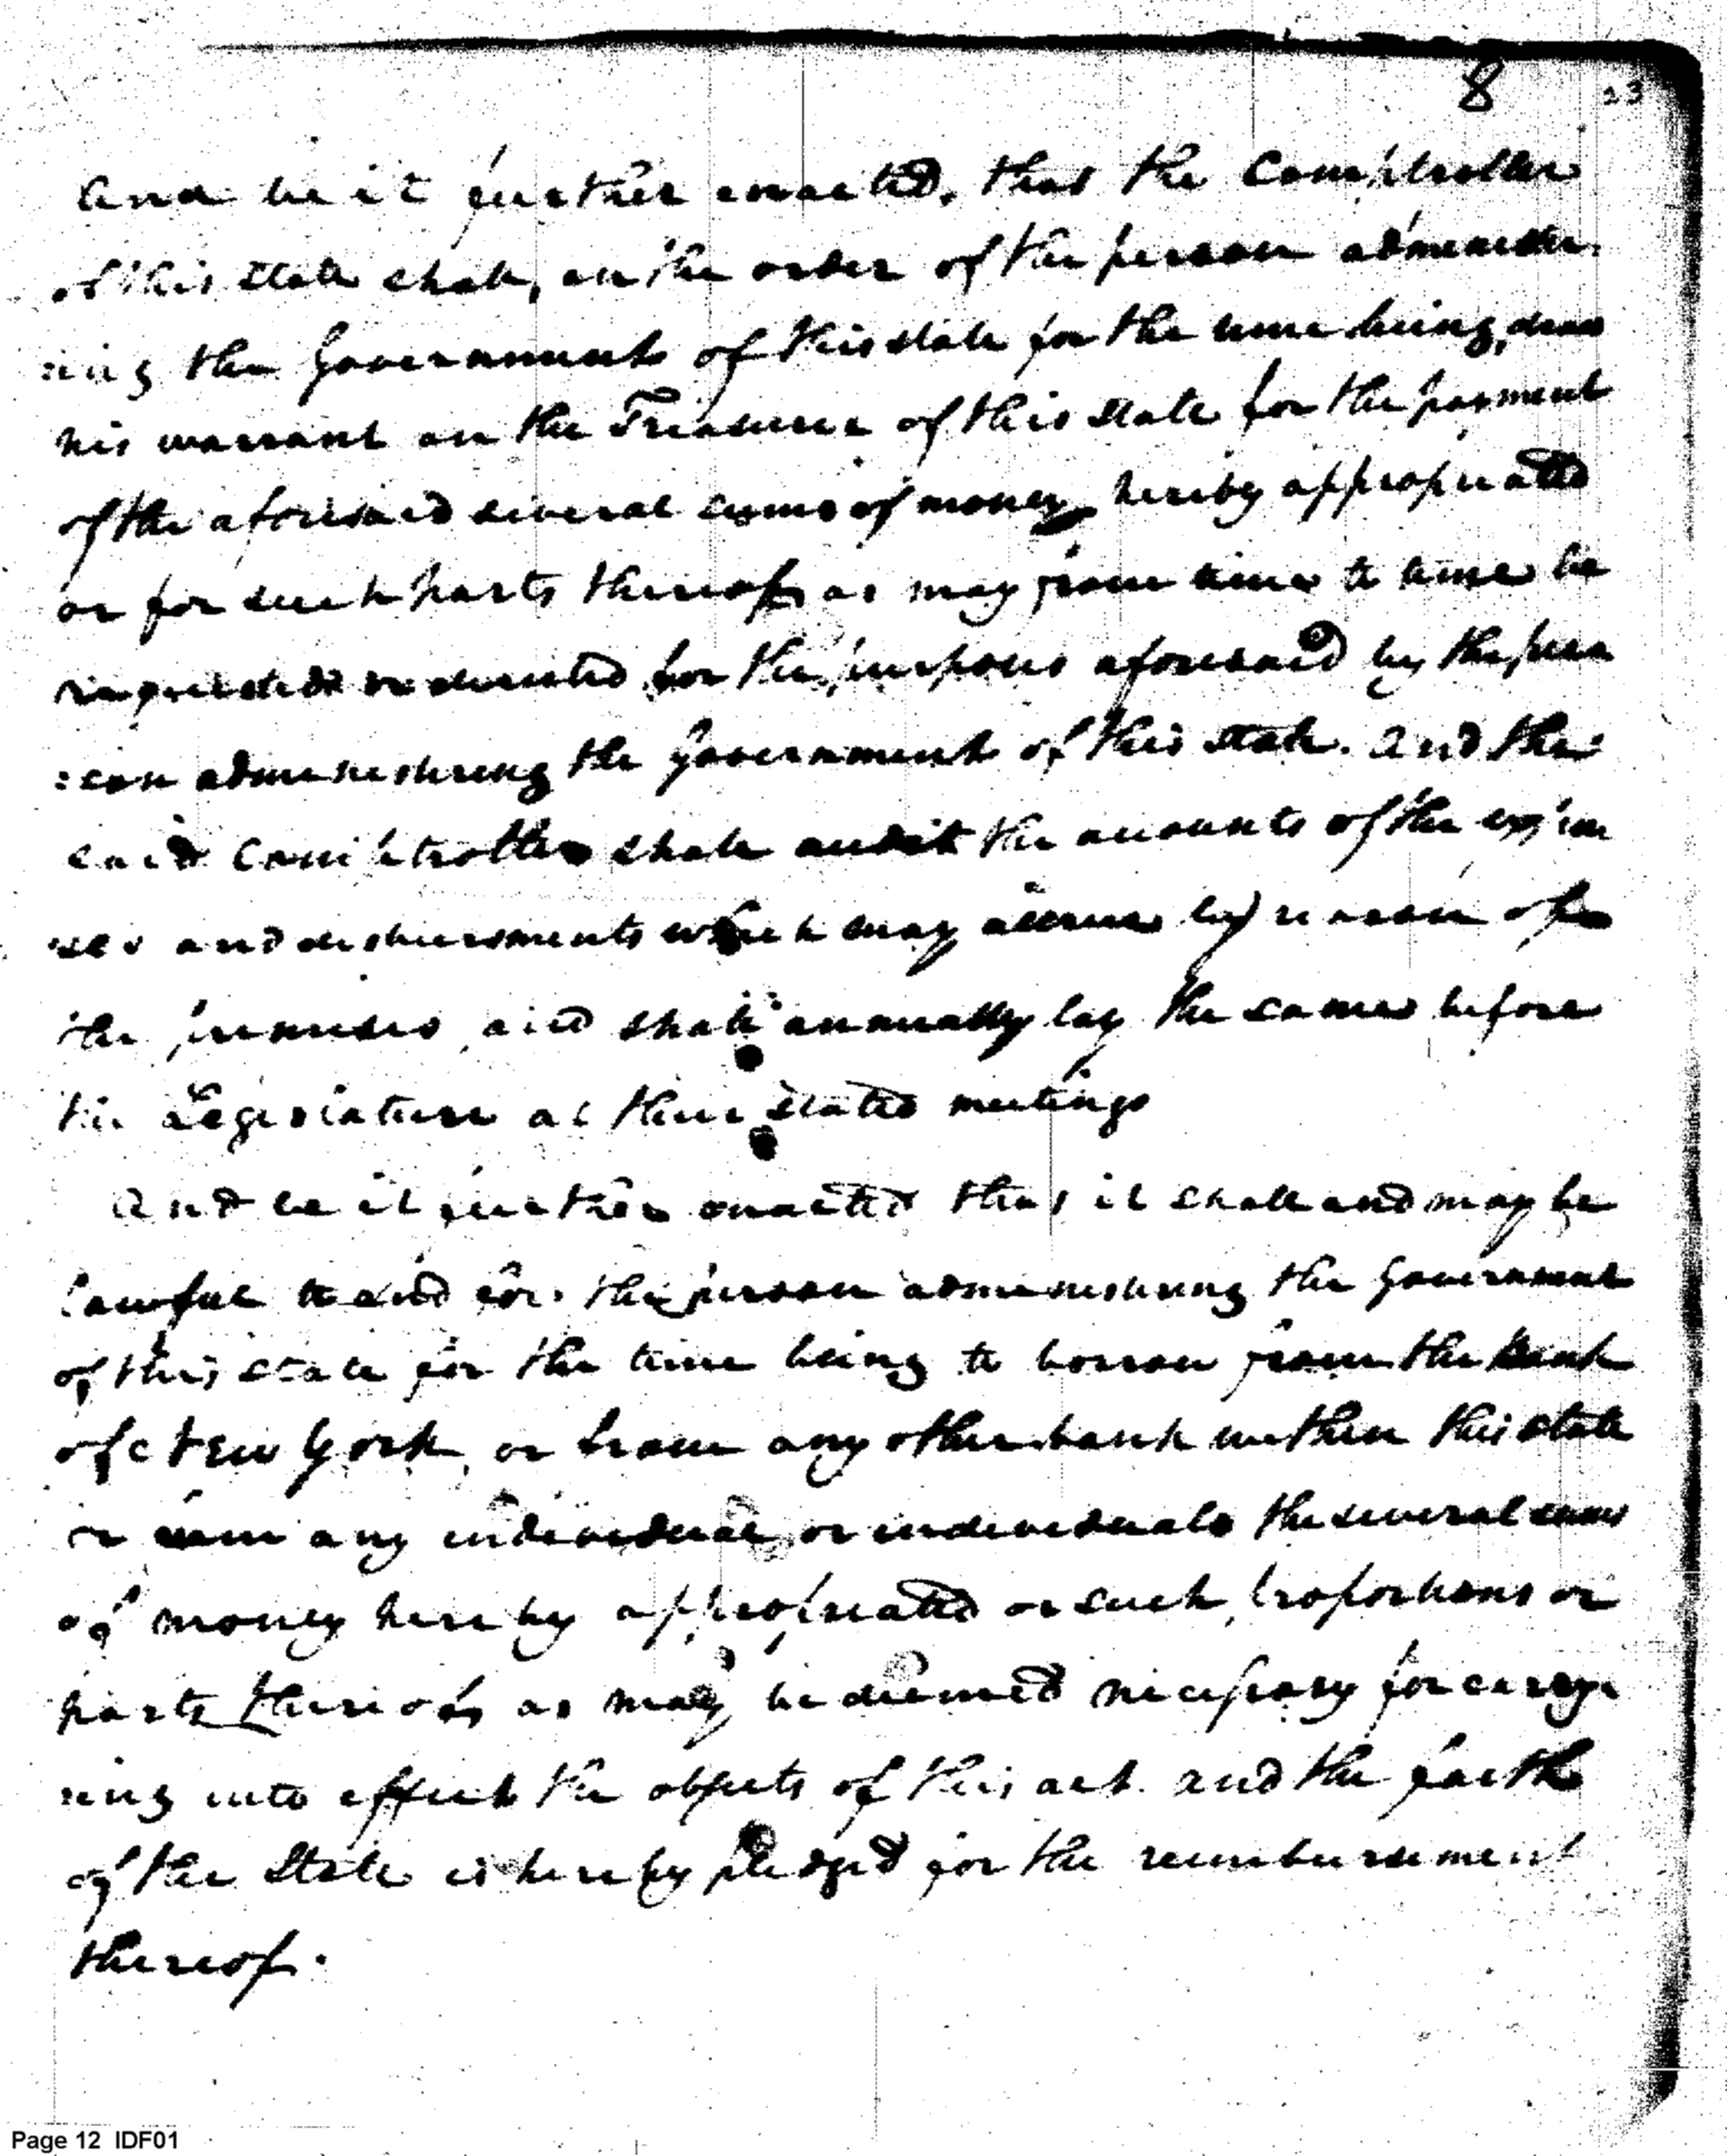 8 23
And be it further enacted, that the Comptroller
of this State shall, on the order of the person administe:
:ring the Government of this state for the time being, draw
his warrant on the Treasurer of this State for the payment
of the aforesaid several sums of money hereby appropriated
or for such parts thereof, as may from time to time be
requested or directed for the purposes aforesaid by the per
:son administering the Government of this State. And the
said Comptroller shall audit the accounts of the expen
:ses and disbursments which may accrue by reason of
the premises, and shall annually lay the same before
the Legislature at their stated meetings
And be it further enacted that it shall and may be
lawful to and for the person administering the Government
of this State for the time being to borrow from the bank
of New York, or from any other bank within this state
or from any individual or individuals the several sums
of money hereby appropriated or such proportions or
parts thereof, as may be deemed necessary for carry:
:ing into effect the objects of this act. and the faith
of the State is hereby pledged for the reimbursement
thereof.
Page 12 IDF01